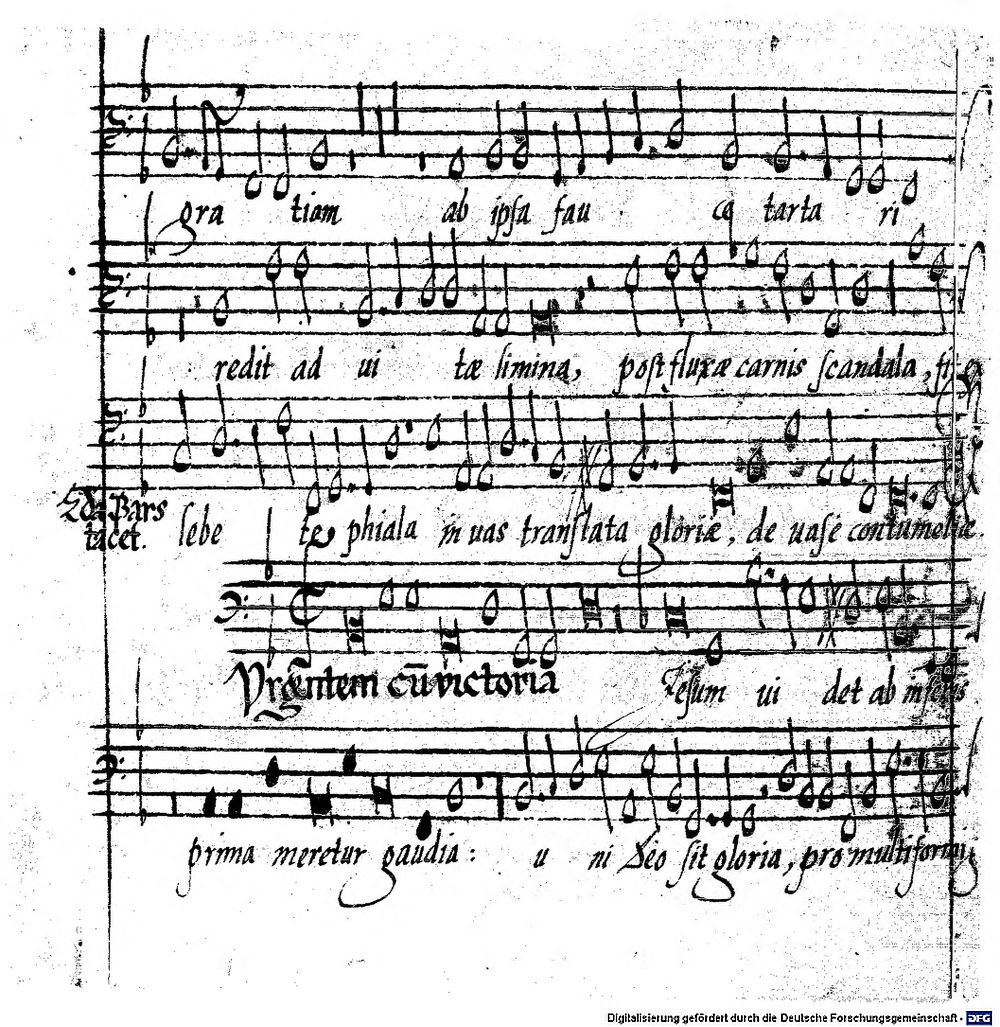 gra tiam ab ipsa fau ce tarta ri
redit ad ui tæ limina, post fluxæ carnis scandala, fi
2da Pars tacet.
lebe te phiala in uas translata gloriæ, de uase contumeliæ.
Vrgentem cū victoria Iesum ui det ab inferis
prima meretur gaudia: u ni Deo sit gloria, pro multiformi
Digitalisierung gefördert durch die Deutsche Forschungsgemeinschaft - DFG